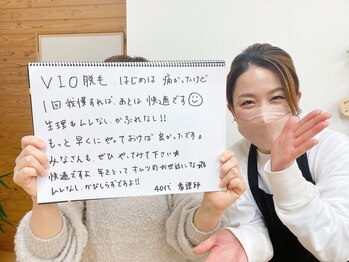 VIO脱毛 はじめは 痛かったけど
1回我慢すれば、あとは 快適です☺
生理もムレなし、かぶれなし!!
もっと早くに やっておけば 良かったです。
みなさんも、ぜひ やってみて下さい★
快適ですよ、年をとって オムツのお世話になっても
ムレなし、かぴしらずですよ!!
40代 看護師